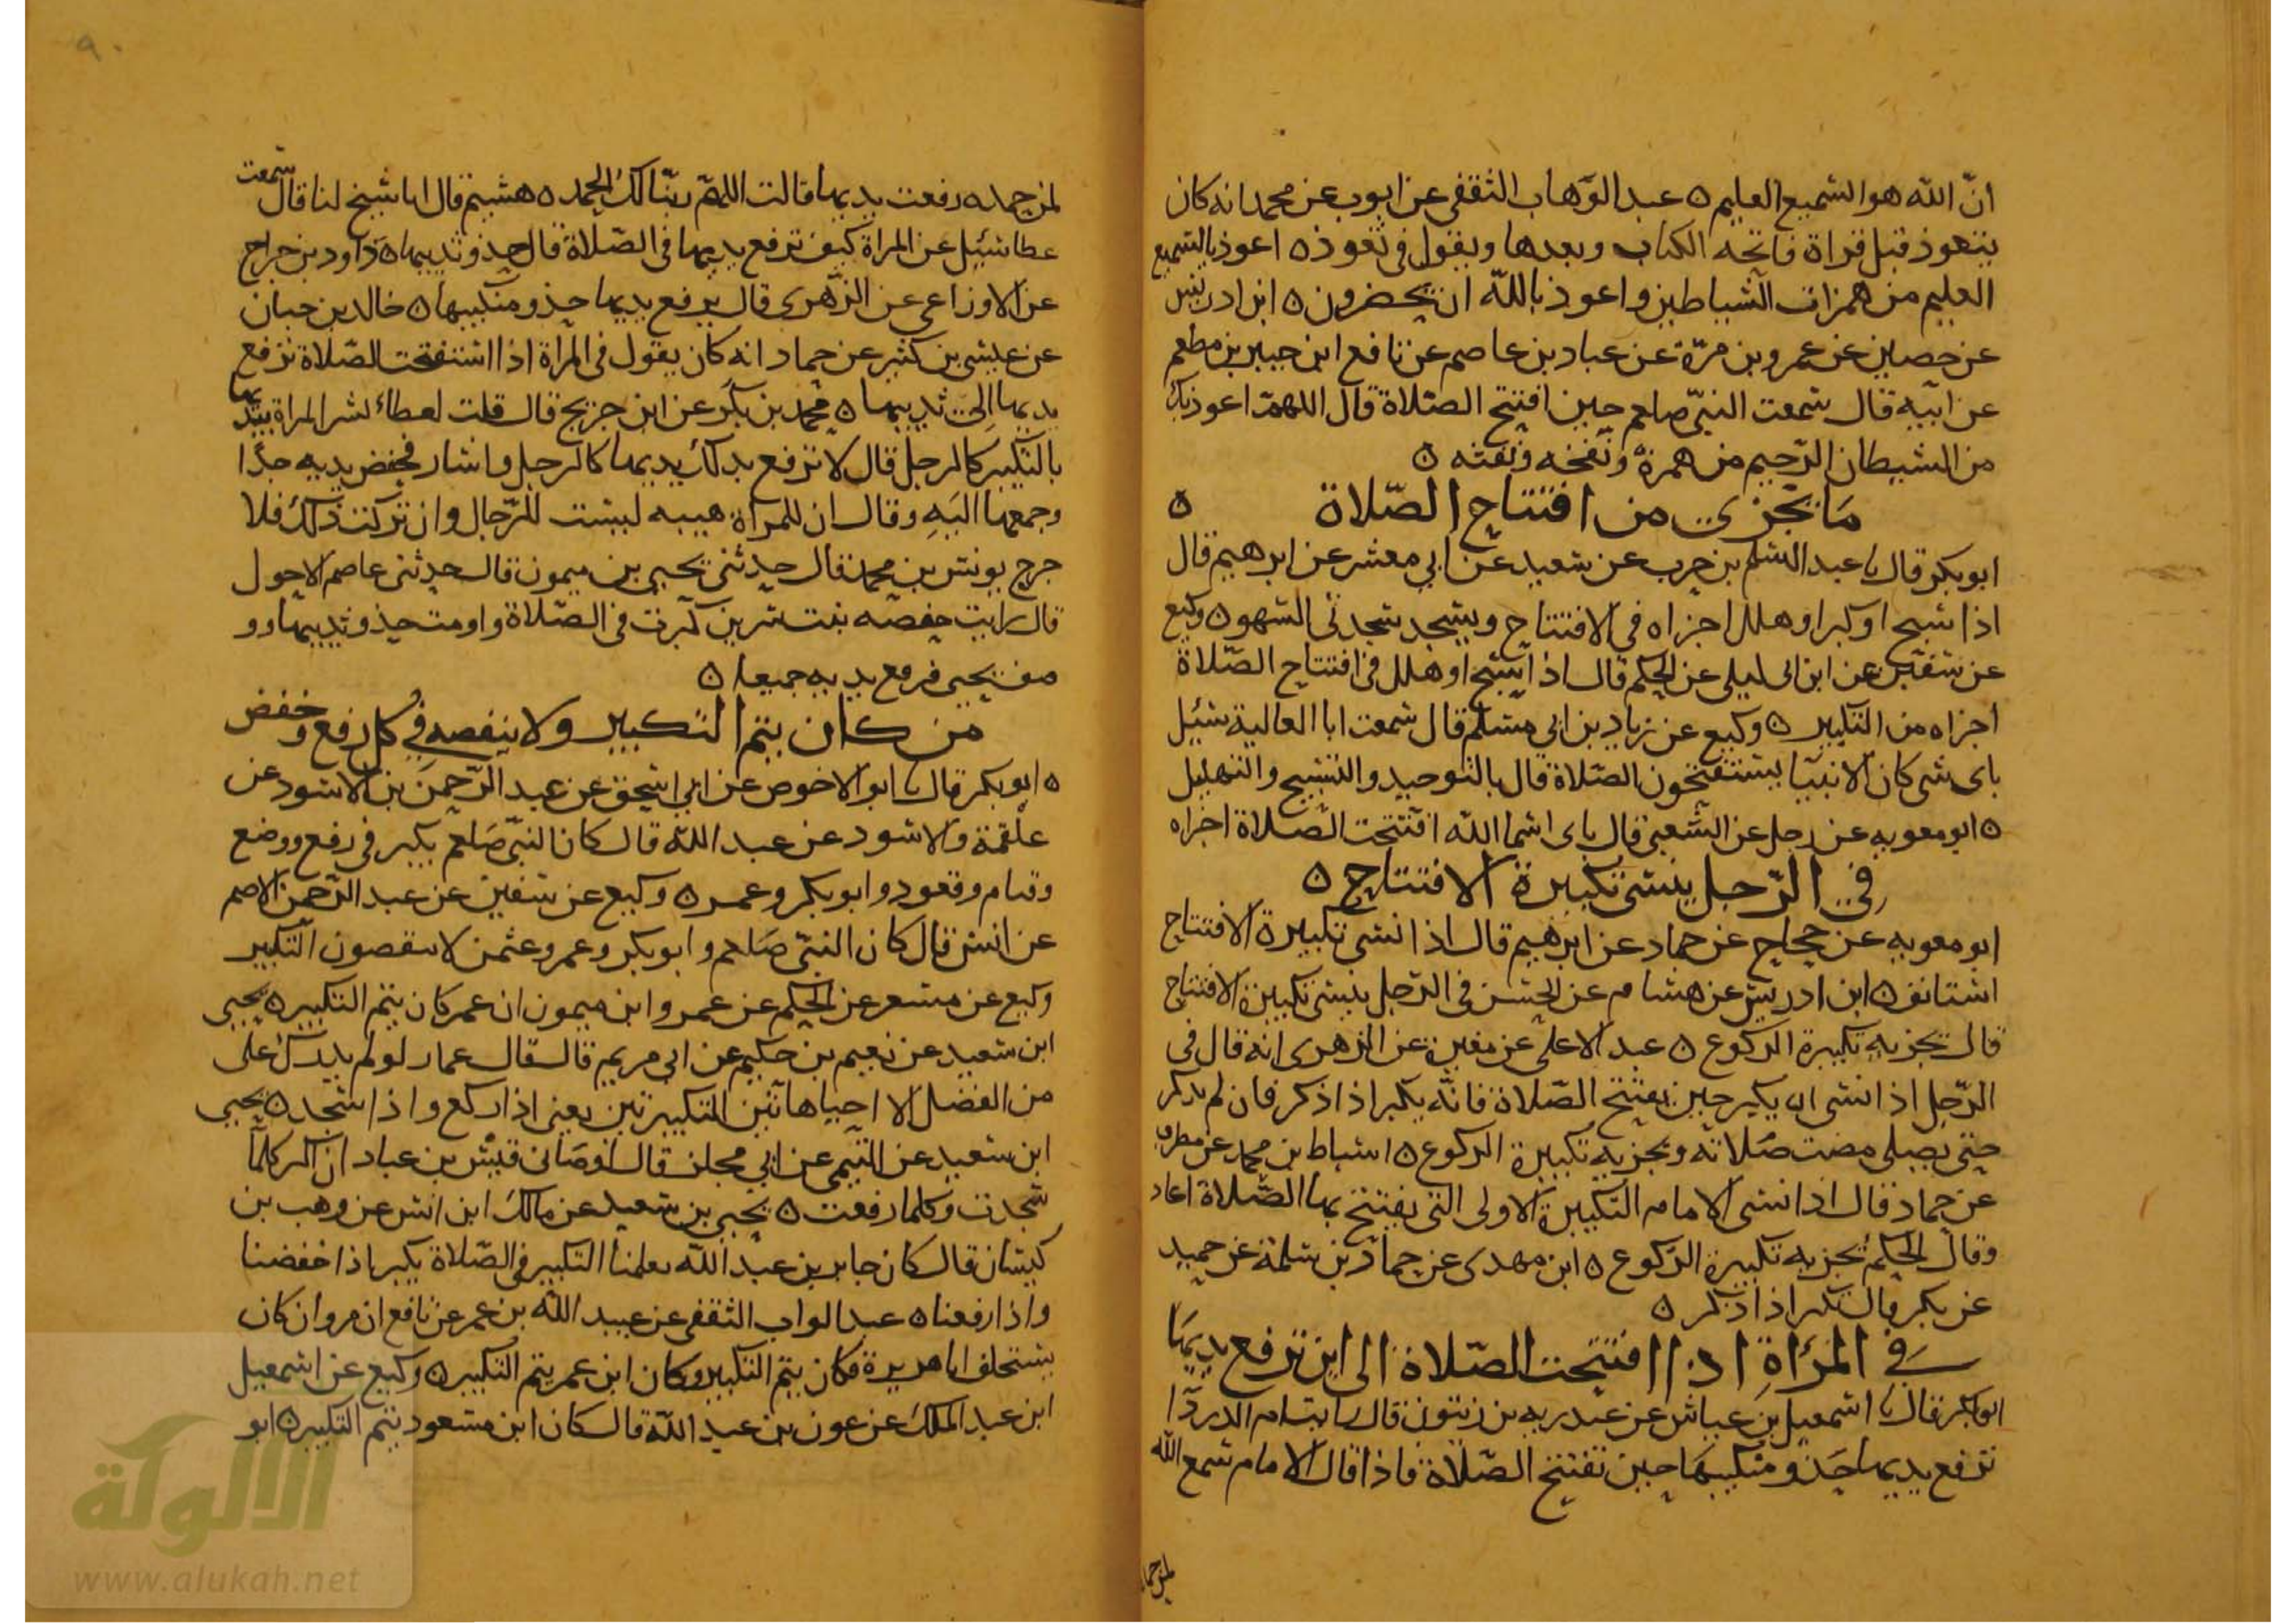 ان الله هو السميع العليم ه عبد الوهاب الثقفي عن ايوب عن محمد انه كان
يتعوذ قبل قراة فاتحه الكتاب وبعدها ويقول في تعوذه اعوذ بالسميع
العليم من همزات الشياطين واعوذ بالله ان يحضرون ه ابن ادريس
عن حصين عن عمرو بن مرة عن عباد بن عاصم عن نافع ابن جبير بن مطعم
عن ابيه قال سمعت النبي صلعم حين افتتح الصلاة قال اللهم اعوذ بك
من الشيطان الرجيم من همزه ونفخه ونفثه ه
ما يجزى من افتتاح الصلاة ه
ابو بكر قال نا عبد السلم بن حرب عن سعيد عن ابي معشر عن ابرهيم قال
اذا سبح او كبر او هلل اجزاه في الافتتاح ويسجد سجدتي السهو ه وكيع
عن سفين عن ابن ابى ليلى عن الحكم قال اذا سبح او هلل في افتتاح الصلاة
اجزاه من التكبير ه وكيع عن زياد بن ابي مسلم قال سمعت ابا العالية سئل
باى شى كان الانبيا يستفتحون الصلاة قال بالتوحيد والتسبيح والتهليل
ه ابو معويه عن رجل عن الشعبي قال باى اسما الله افتتحت الصلاة اجزاه
في الرجل ينسى تكبيرة الافتتاح ه
ابو معويه عن حجاج عن حماد عن ابرهيم قال اذا نسى تكبيرة الافتتاح
استانف ه ابن ادريس عن هشام عن الحسن في الرجل ينسى تكبيرة الافتتاح
قال تجزيه تكبيرة الركوع ه عبد الاعلى عن معمر عن الزهرى انه قال في
الرجل اذا نسى ان يكبر حين يفتتح الصلاة فانه يكبر اذا ذكر فان لم يذكر
حتى يصلى مضت صلاته وتجزيه تكبيرة الركوع ه اسباط بن محمد عن مطرف
عن حماد قال اذا نسى الامام التكبيرة الاولى التى يفتتح بها الصلاة اعاد
وقال الحكم تجزيه تكبيرة الركوع ه ابن مهدى عن حماد بن سلمة عن حميد
عن بكر قال يكبر اذا ذكر ه
في المرأة اذا افتتحت الصلاة الى اين ترفع يديها
ابو بكر قال نا اسمعيل بن عياش عن عبد ربه بن زيتون قال رايت ام الدردا
ترفع يديها حذو منكبيها حين تفتتح الصلاة فاذا قال الامام سمع الله
لمن حمد
٩٠
لمن حمده رفعت يديها قالت اللهم ربنا لك الحمد ه هشيم قال انا شيخ لنا قال سمعت
عطا سئيل عن المراة كيف ترفع يديها في الصلاة قال حذو ثدييها ه داود بن جراح
عن الاوزاعي عن الزهرى قال ترفع يديها حذو منكبيها ه خالد بن حيان
عن عيسى بن كثير عن حماد انه كان يقول في المراة اذا استفتحت الصلاة ترفع
يديها الى ثدييها ه محمد بن بكر عن ابن جريج قال قلت لعطاء تشير المراة بيديها
بالتكبير كالرجل قال لا ترفع بذلك يديها كالرجل واشار فخفض يديه جدا
وجمعها اليه وقال ان للمراة هيبه ليست للرجال وان تركت ذلك فلا
حرج يونس بن محمد قال حدثني يحيى بن ميمون قال حدثنى عاصم الاحول
قال رايت حفصه بنت سرين كبرت في الصلاة واومت حذو ثدييها وو
صف يحيى فرفع يديه جميعا ه
من كان يتم التكبير ولا ينقصه في كل رفع وخفض
ه ابو بكر قال نا ابو الاحوص عن ابي اسحق عن عبد الرحمن بن الاسود عن
علقمة والاسود عن عبد الله قال كان النبي صلعم يكبر في رفع ووضع
وقيام وقعود وابو بكر وعمر ه وكيع عن سفين عن عبد الرحمن الاصم
عن انس قال كان النبي صلعم وابو بكر وعمر وعثمن لا ينقصون التكبير
وكيع عن مسعر عن الحكم عن عمرو ابن ميمون ان عمر كان يتم التكبير ه يحيى
ابن سعيد عن نعيم بن حكيم عن ابى مريم قال قال عمار لو لم يدرك على
من الفضل الا احياها تين التكبيرتين يعنى اذا ركع واذا سجد ه يحيى
ابن سعيد عن التيمى عن ابي مجلز قال اوصانى قيس بن عباد ان اكبر كلما
سجدت وكلما رفعت ه يحيى بن سعيد عن مالك ابن انس عن وهب بن
كيسان قال كان جابر بن عبد الله يعلمنا التكبير في الصلاة يكبر اذا خفضنا
واذا رفعنا ه عبد الواب الثقفي عن عبيد الله بن عمر عن نافع ان مروان كان
يستخلف ابا هريرة فكان يتم التكبير وكان ابن عمر يتم التكبير ه وكيع عن اسمعيل
ابن عبد الملك عن عون بن عبد الله قال كان ابن مسعود يتم التكبير ه ابو
الألوكة
www.alukah.net